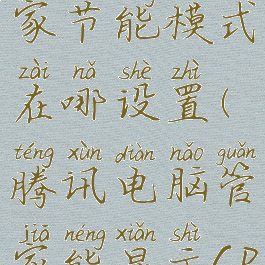 家节能模式
zài nǎ shè zhì
在哪设置(
téng xùn diàn nǎo guǎn
腾讯电脑管
jiā néng xiǎn shì
家能显示(